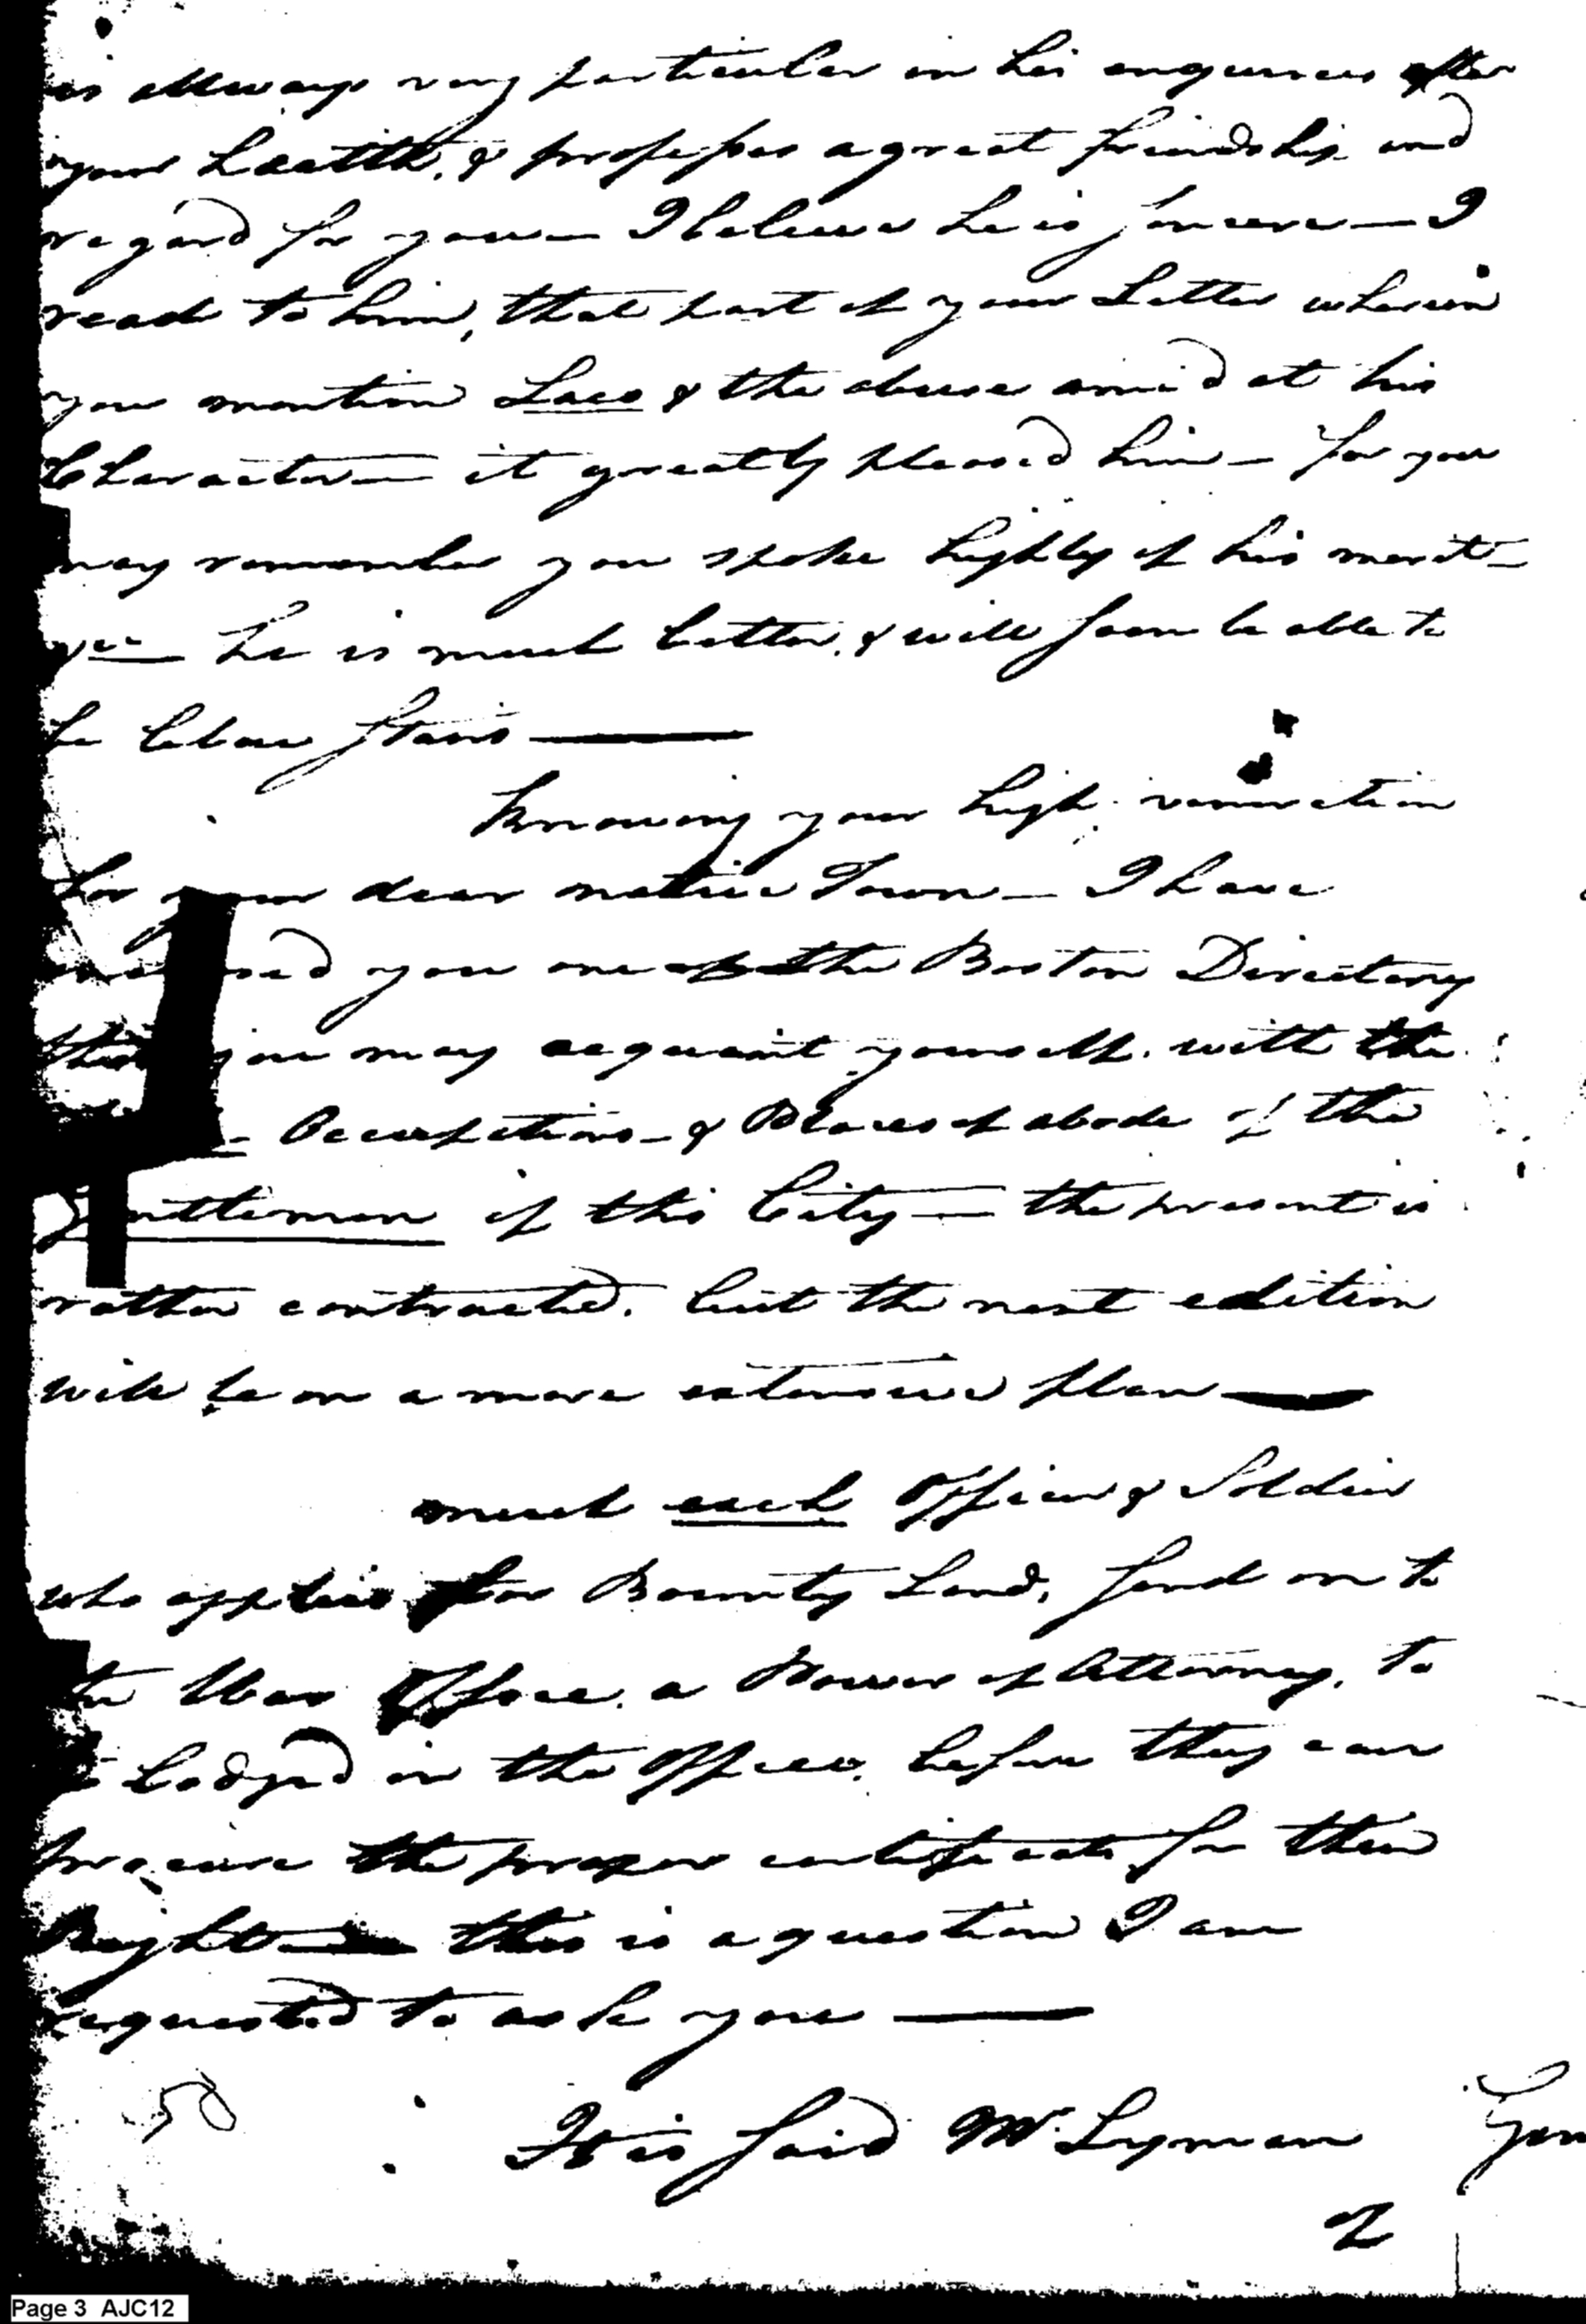 is allways very particular in his enquiries after
your health, & professes a great friendship and
regard for you — I beleive he is sincere — I
read to him, that part of your Letter wherein
you mention Laco & the abuse aim'd at his
Character — it greatly pleased him — for you
may remember you spoke highly of his merit —
he is much better, & will soon be able to
be below Stairs —
Knowing your high veneration
for your dear native Town — I have
you one of the Boston Directory
that you may acquaint yourself with the
Occupations — & Places of abode of the
gentlemen of this City — the present is
rather contracted, but the next edition
will be on a more extensive plan —
must each Officer & Soldier
who applies for Bounty Land, send on to
the War Office, a Power of Attorney, to
be Lodged in the Office, before they can
procure the proper certificate for their
Right — this is a question I am
requested to ask you —
It is said Mr. Lyman
2
Page 3 AJC12